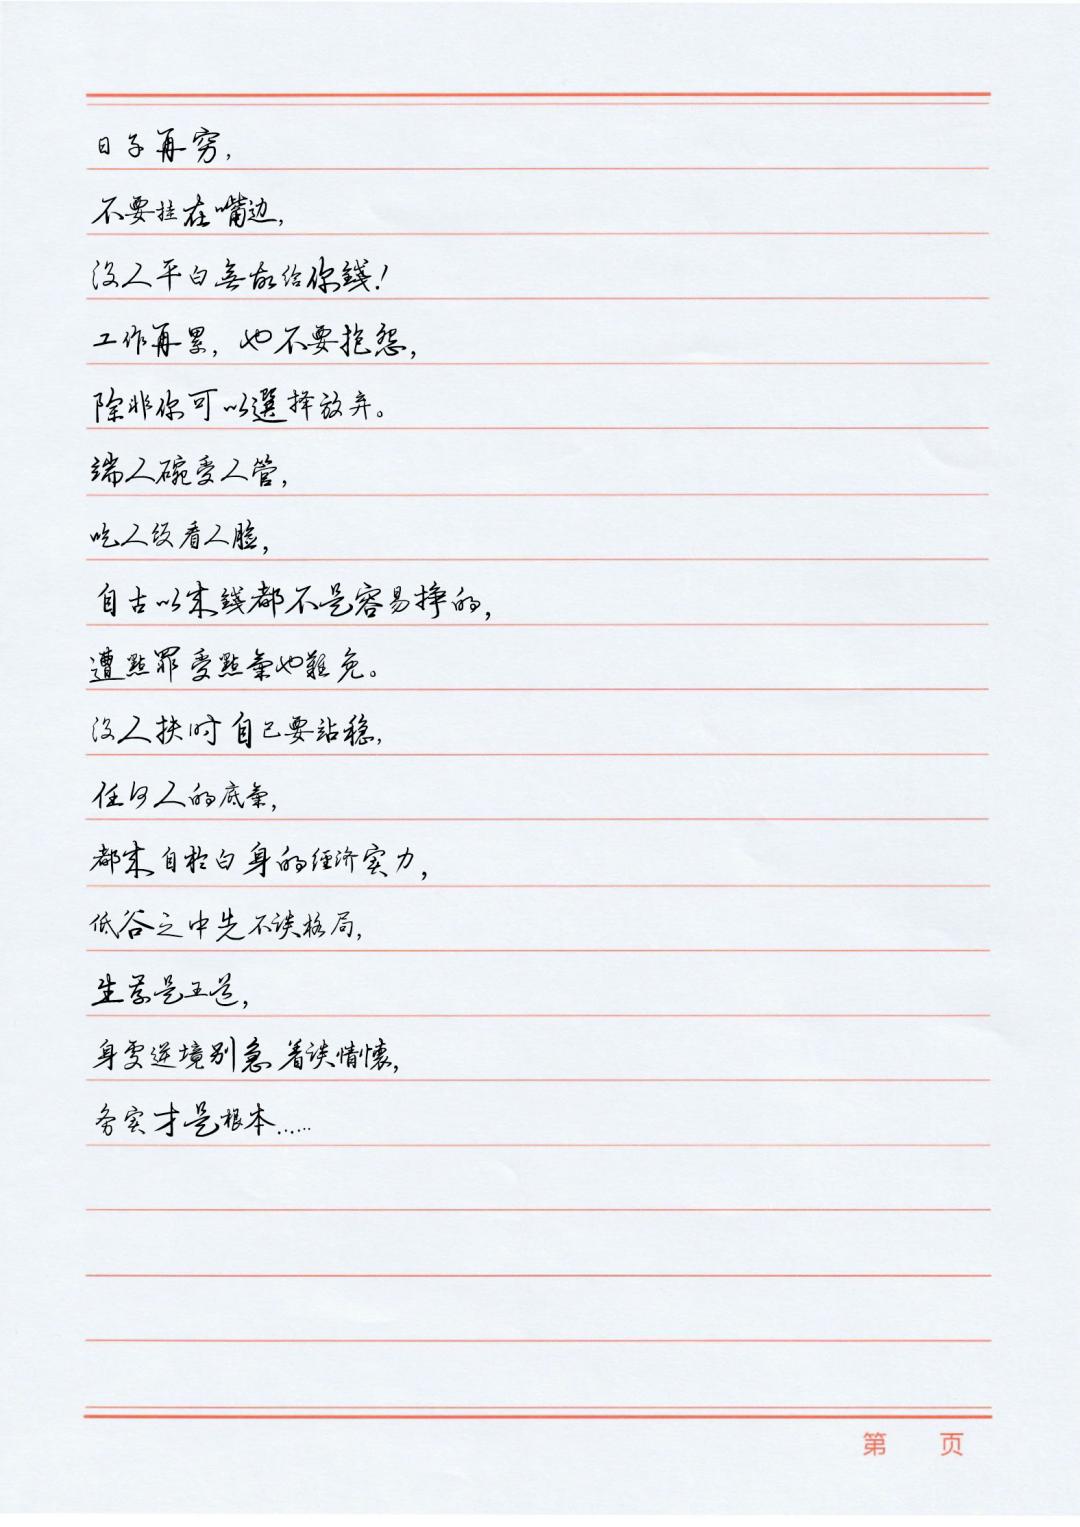 日子再穷，
不要挂在嘴边，
没人平白無故给你錢！
工作再累，也不要抱怨，
除非你可以選择放弃。
端人碗受人管，
吃人饭看人脸，
自古以来錢都不是容易挣的，
遭點罪受點氣也難免。
没人扶时自己要站稳，
任何人的底氣，
都来自於自身的经济实力，
低谷之中先不谈格局，
生存是王道，
身处逆境别急着谈情懷，
务实才是根本……
第 页